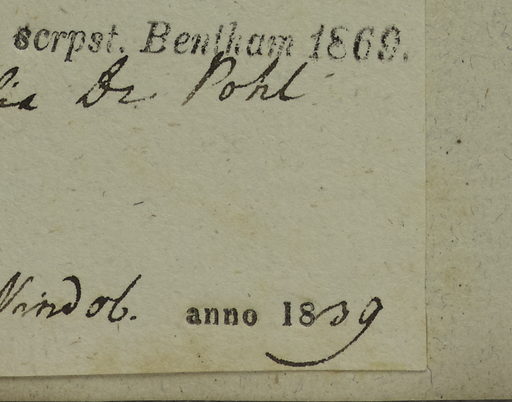 scrpst. Bentham 1869.
lia Dr Pohl
Vindob. anno 1839